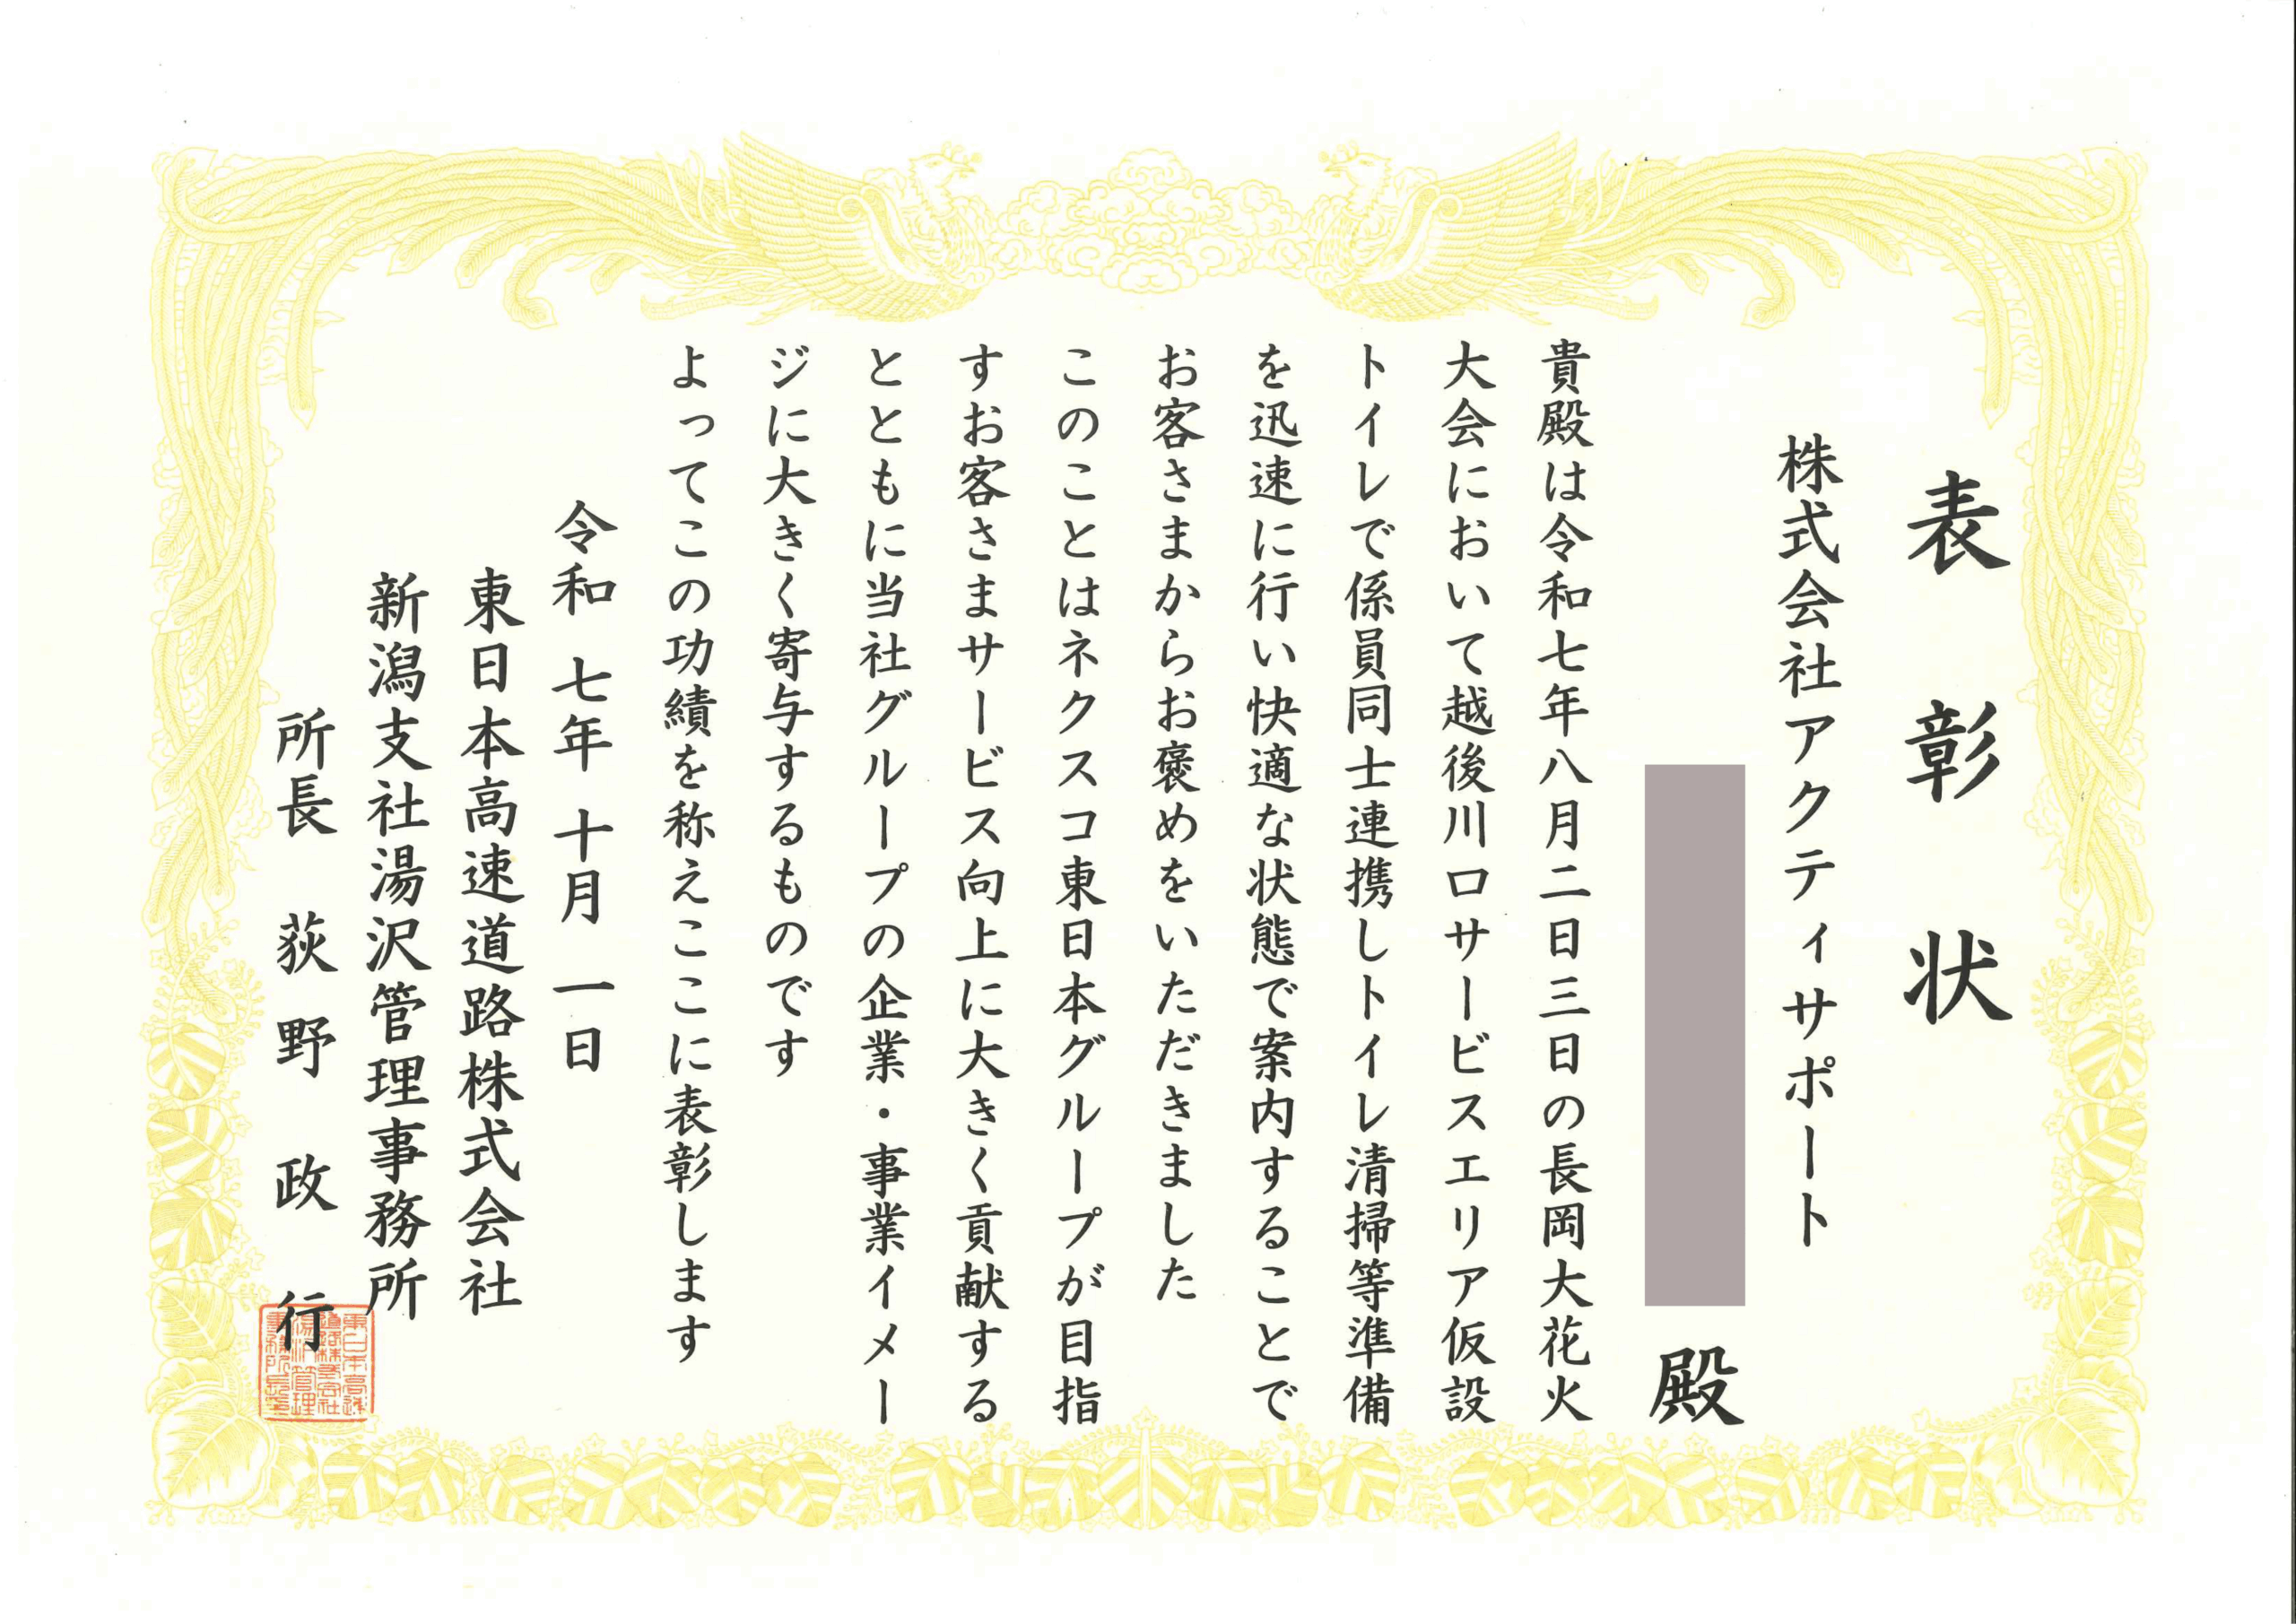 表彰状
株式会社アクティサポート
殿
貴殿は令和七年八月二日三日の長岡大花火
大会において越後川口サービスエリア仮設
トイレで係員同士連携しトイレ清掃等準備
を迅速に行い快適な状態で案内することで
お客さまからお褒めをいただきました
このことはネクスコ東日本グループが目指
すお客さまサービス向上に大きく貢献する
とともに当社グループの企業・事業イメー
ジに大きく寄与するものです
よってこの功績を称えここに表彰します
令和 七年 十月 一日
東日本高速道路株式会社
新潟支社湯沢管理事務所
所長 荻野 政行